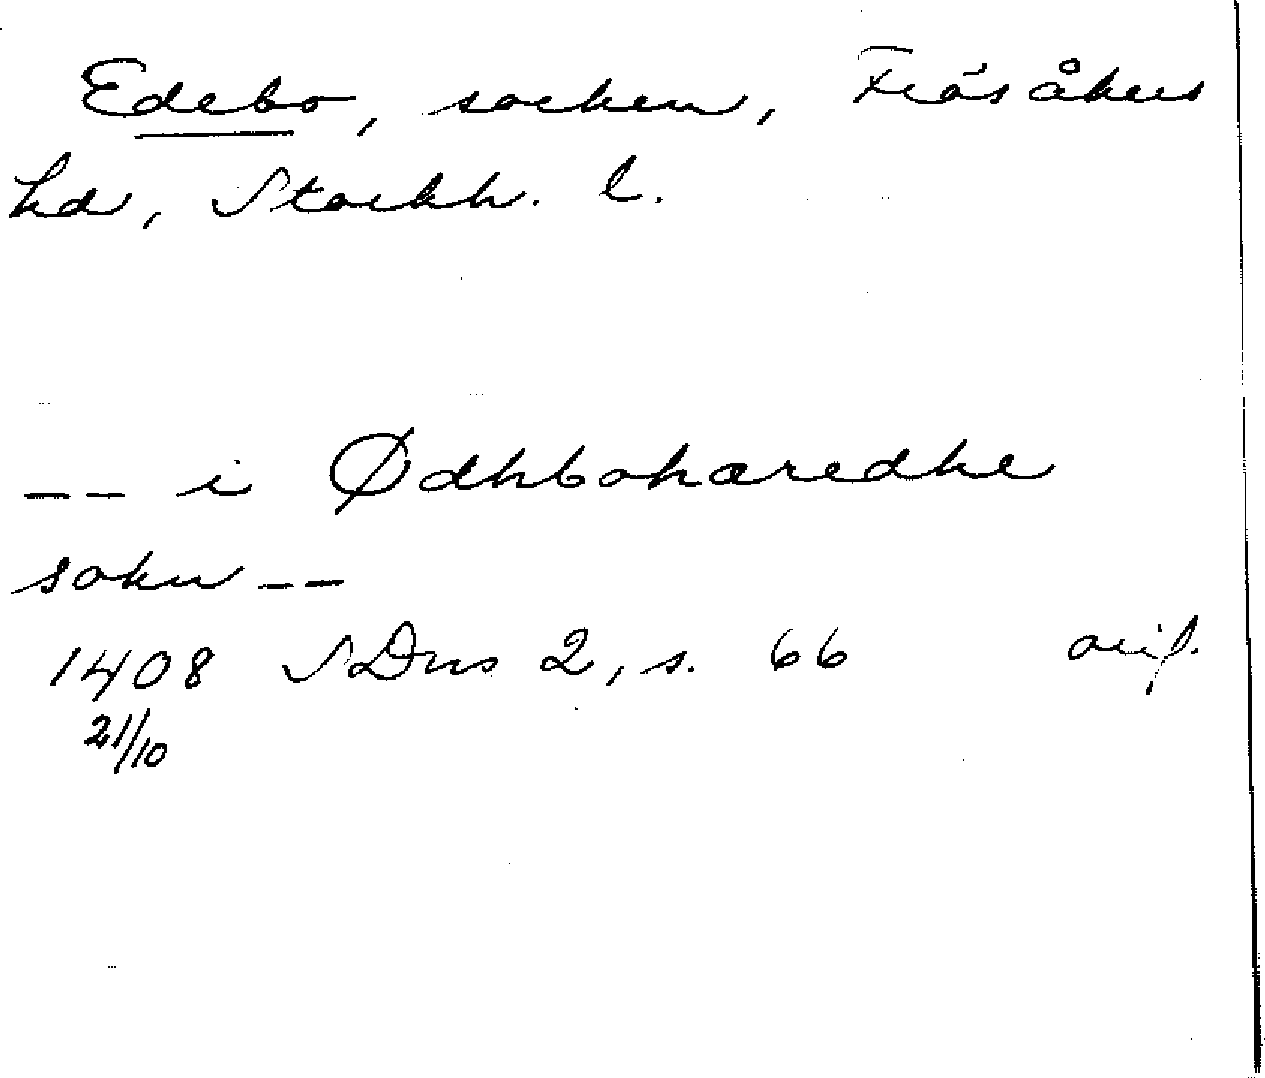 Edebo, socken, Frösåkers
hd, Stockh. l.
-- i Ødhbohæredhe
sokn --
1408 SDns 2, s. 66 orig.
21/10